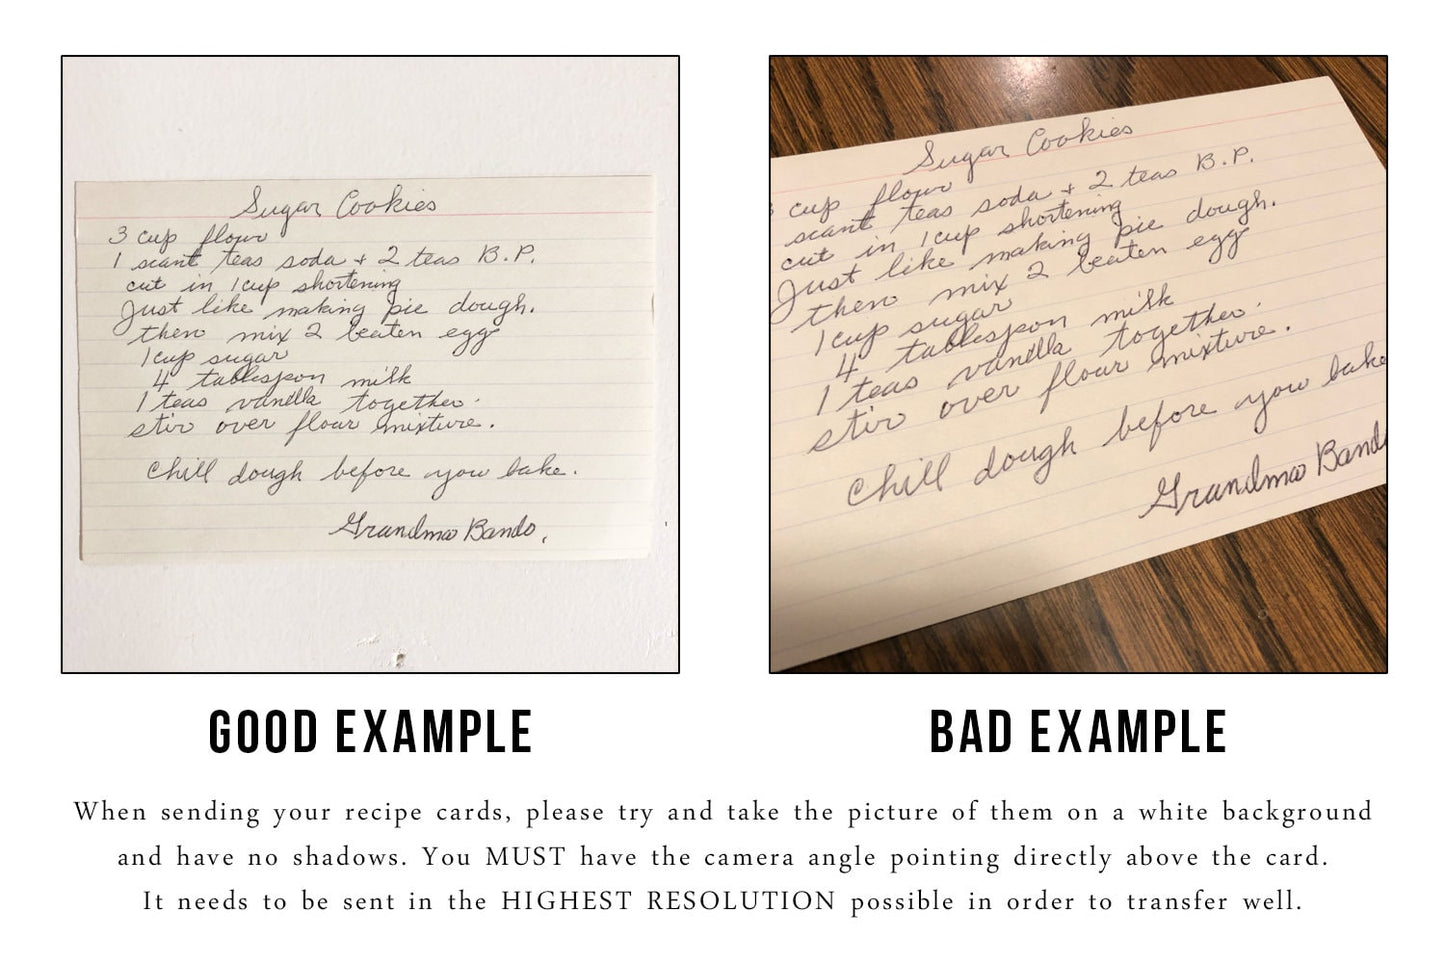 Sugar Cookies
3 cup flour
1 scant teas soda + 2 teas B.P.
cut in 1 cup shortening
Just like making pie dough.
then mix 2 beaten egg
1 cup sugar
4 tablespoon milk
1 teas vanilla together.
stir over flour mixture.
Chill dough before you bake.
Grandma Bando,
Sugar Cookies
3 cup flour
scant teas soda + 2 teas B.P.
cut in 1 cup shortening
Just like making pie dough.
then mix 2 beaten egg
1 cup sugar
4 tablespoon milk
1 teas vanilla together.
stir over flour mixture.
Chill dough before you bake
Grandma Band
GOOD EXAMPLE
BAD EXAMPLE
When sending your recipe cards, please try and take the picture of them on a white background
and have no shadows. You MUST have the camera angle pointing directly above the card.
It needs to be sent in the HIGHEST RESOLUTION possible in order to transfer well.